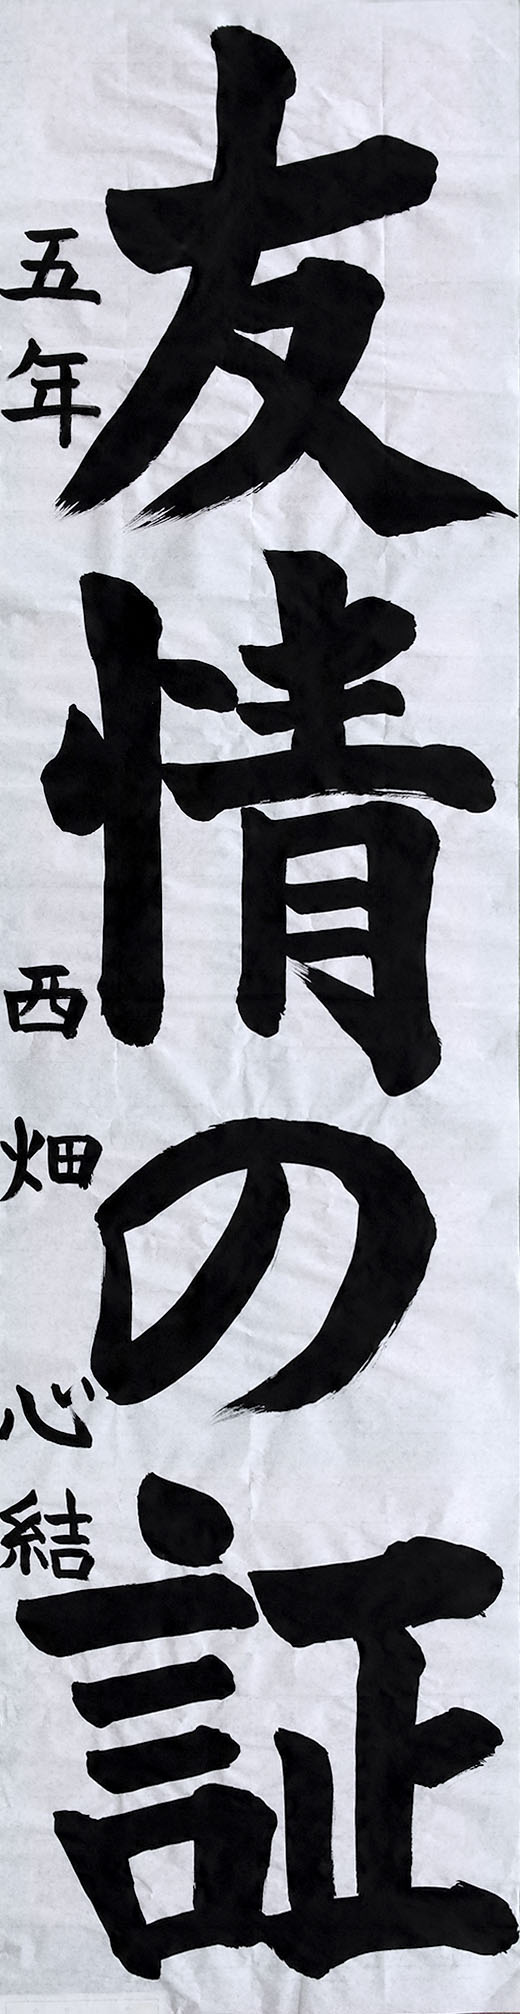 友情の証
五年 西畑心結